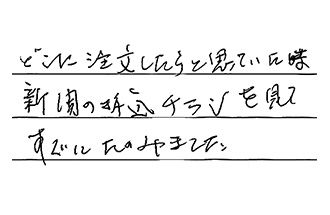 どこに注文したらと思っていた時
新聞の折込チラシを見て
すぐにたのみました